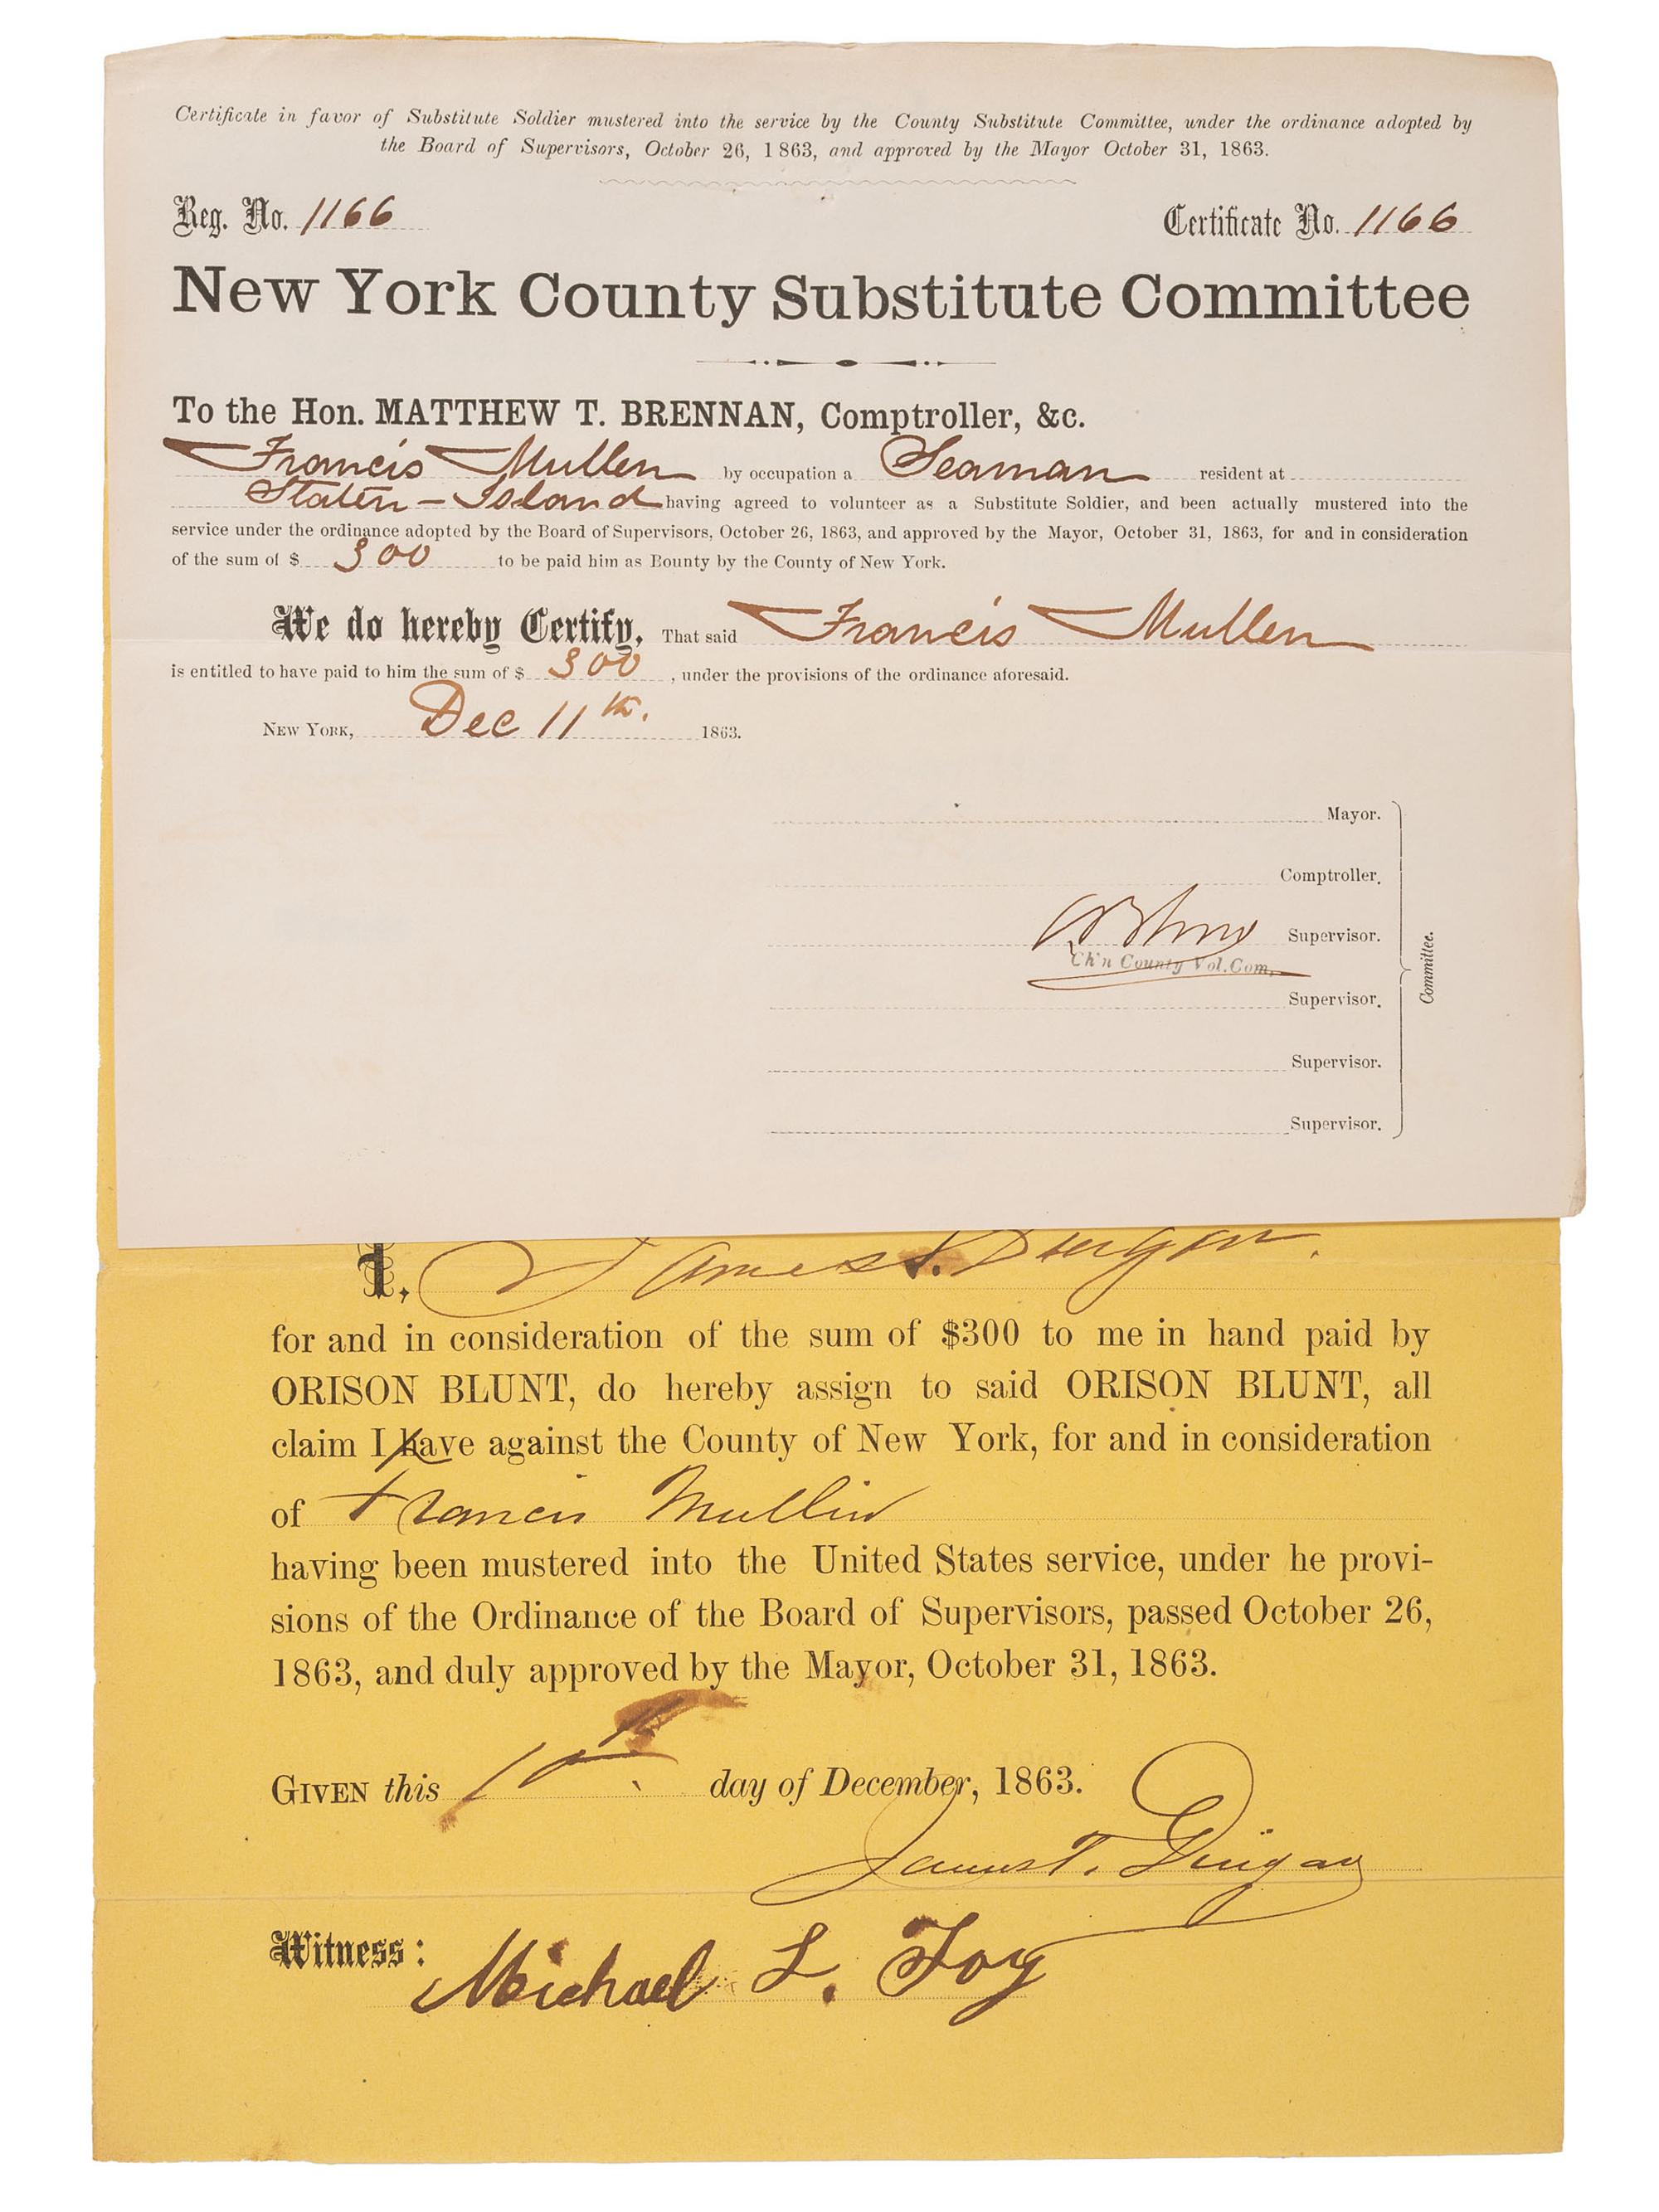 Certificate in favor of Substitute Soldier mustered into the service by the County Substitute Committee, under the ordinance adopted by
the Board of Supervisors, October 26, 1863, and approved by the Mayor October 31, 1863.
Reg. No. 1166 Certificate No. 1166
New York County Substitute Committee
To the Hon. MATTHEW T. BRENNAN, Comptroller, &c.
Francis Mullen by occupation a Seaman resident at
Staten-Island having agreed to volunteer as a Substitute Soldier, and been actually mustered into the
service under the ordinance adopted by the Board of Supervisors, October 26, 1863, and approved by the Mayor, October 31, 1863, for and in consideration
of the sum of $ 300 to be paid him as Bounty by the County of New York.
We do hereby Certify, That said Francis Mullen
is entitled to have paid to him the sum of $ 300, under the provisions of the ordinance aforesaid.
NEW YORK, Dec 11th. 1863.
Mayor.
Comptroller.
Supervisor.
Ch'n County Vol. Com.
Supervisor.
Supervisor.
Supervisor.
Committee.
I, James
for and in consideration of the sum of $300 to me in hand paid by
ORISON BLUNT, do hereby assign to said ORISON BLUNT, all
claim I have against the County of New York, for and in consideration
of Francis Mullin
having been mustered into the United States service, under he provi-
sions of the Ordinance of the Board of Supervisors, passed October 26,
1863, and duly approved by the Mayor, October 31, 1863.
GIVEN this 10th day of December, 1863.
James T.
Witness: Michael L. Foy